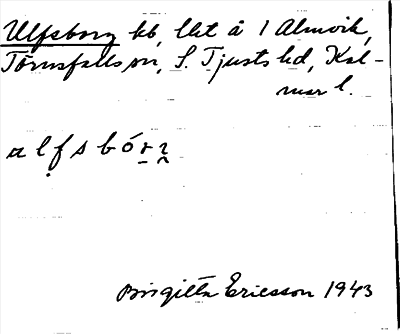 Ulfsborg kb, lht å 1 Almvik,
Törnsfalls sn, S. Tjusts hd, Kal-
mar l.
alfsbór̠
Birgitta Ericsson 1943